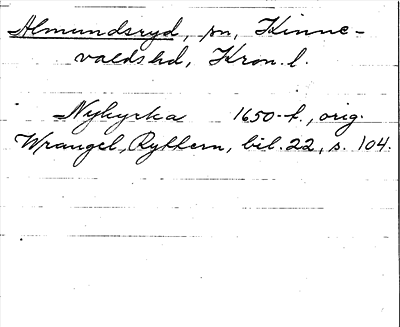 Almundsryd, sn, Kinne-
valds hd, Kron. l.
Nykyrka 1650-t., orig.
Wrangel, Ryttern, bil. 22, s. 104.